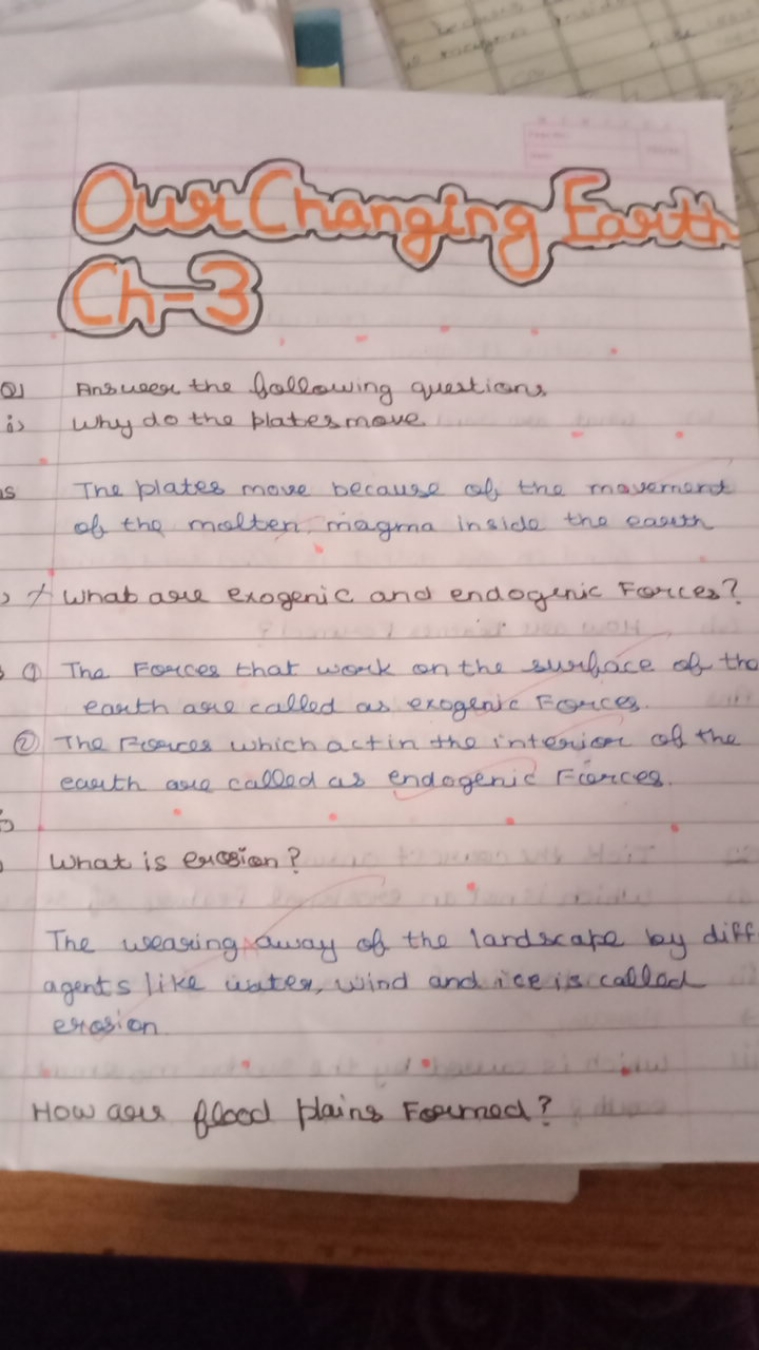 Our Changing Earth
Ch-3
Q1 Answer the following questions
i) Why do the plates move
s The plates move because of the movement
of the molten magma inside the earth
What are exogenic and endogenic Forces?
① The Forces that work on the surface of the
earth are called as exogenic Forces.
② The Forces which act in the interior of the
earth are called as endogenic Forces.
What is erosion?
The wearing away of the landscape by diff
agents like water, wind and ice is called
erosion
How are flood plains Formed?